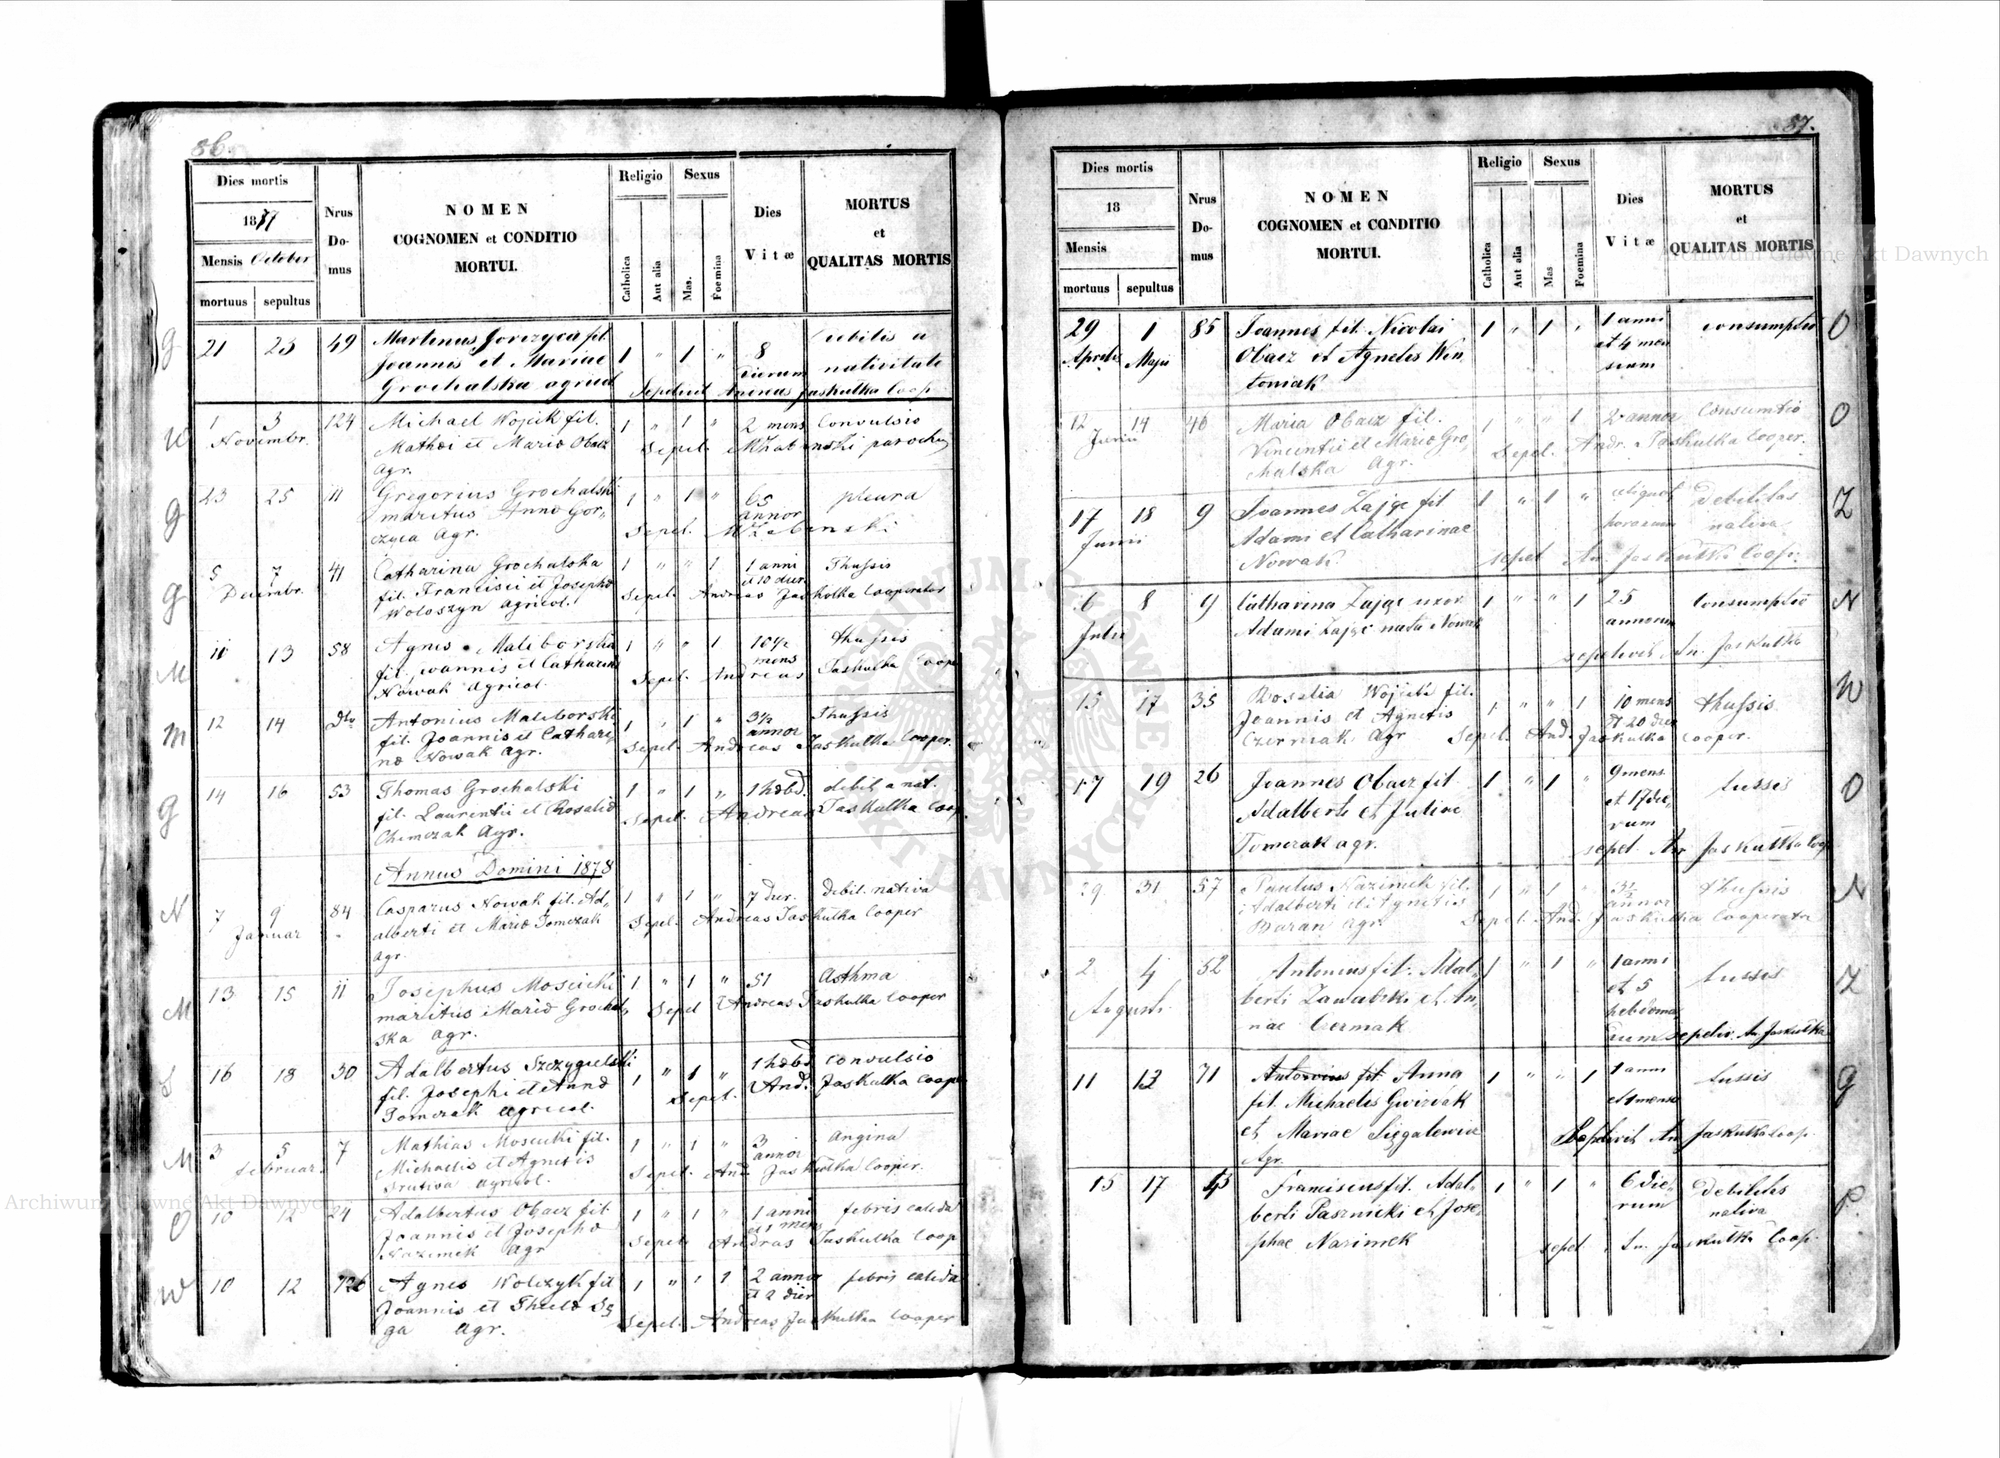 86.
Dies mortis
1877
Mensis October
mortuus sepultus
Nrus Domus
NOMEN
COGNOMEN et CONDITIO
MORTUI.
Religio
Catholica
Aut alia
Sexus
Mas.
Foemina
Dies
Vitæ
MORTUS
et
QUALITAS MORTIS
G 21 23 49 Martinus Gorczyca fil. 1 " 1 " 8 debilis a
Joannis et Mariae dierum nativitate
Grochalska agricol Sepelivit Andreas Jaskulka Coop.
W 1 3 124 Michael Wojcik fil. 1 " 1 " 2 mens Convulsio
Novembr. Mathei et Mario Obacz Sepel. parochus
Agr.
G 23 25 11 Gregorius Grochalski 1 " 1 " 65 pleura
maritus Anno Gor- annor
czyca Agr. Sepel.
G 5 7 41 Catharina Grochalska 1 " " 1 1 anni Thussis
Decembr. fil. Francisci et Josepho et 10 dier
Woloszyn agricol. Sepel. Andreas Jaskolka Cooperator
M 11 13 58 Agnes Maliborska 1 " " 1 10½ thussis
fil. Joannis et Catharino mens
Nowak agricol. Sepel. Andreas Jaskulka Cooper
M 12 14 dto Antonius Maliborski 1 " 1 " 3½ Thussis
fil. Joannis et Cathari- annor
no Nowak agr. Sepel. Andreas Jaskulka Cooper.
G 14 16 53 Thomas Grochalski 1 " 1 " 1 hebd. debil. a nat.
fil. Laurentii et Rosalio Sepel. Andreas Jaskulka Coop.
Agr.
Annus Domini 1878
N 7 9 84 Casparus Nowak fil. Ad- 1 " 1 " 7 dier. debil. nativa
Januar alberti et Mario Tomczak Sepel. Andreas Jaskulka Cooper
agr.
M 13 15 11 Josephus Moscicki 1 " 1 " 51 Asthma
maritus Mario Grochal- Sepel Andreas Jaskulka Cooper
ska agr.
S 16 18 30 Adalbertus Szczygielski 1 " 1 " 1 hebd Convulsio
fil. Josephi et Anno Sepel. And. Jaskulka Cooper
Tomczak agricol.
M 3 5 7 Mathias Moscicki fil. 1 " 1 " 3 angina
Februar. Michaelis et Agnetis annor
agricol. Sepel. And Jaskulka Cooper.
O 10 12 24 Adalbertus Obacz fil. 1 " 1 " 1 anni febris calida
Joannis et Josepho et 1 mens
Nazimek Agr Sepel. Andras Jaskulka Coop
W 10 12 126 Agnes Wolczyk fil 1 " 1 1 2 annor febris calida
Joannis et et 2 dier
ga agr. Sepel. Andreas Jaskulka Cooper
87.
Dies mortis
18
Mensis
mortuus sepultus
Nrus Domus
NOMEN
COGNOMEN et CONDITIO
MORTUI.
Religio
Catholica
Aut alia
Sexus
Mas
Foemina
Dies
Vitæ
MORTUS
et
QUALITAS MORTIS
29 1 85 Joannes fil. Nicolai 1 " 1 " 1 anni consumptio O
Aprilis Maji Obacz et Agnetis Win- et 4 men
toniak sium
12 14 46 Maria Obacz fil. 1 " " 1 2 annor Consumtio O
Junii Vincentii et Mario Gro- Sepel. Andr. Jaskulka Cooper.
chalska Agr.
17 18 9 Joannes Zając fil 1 " 1 " aliquot debilitas Z
Junii Adami et Catharinae horarum nativa
Nowak sepel An. Jaskulka Coop.
6 8 9 Catharina Zając uxor 1 " " 1 25 Consumptio N
Julii Adami Zając nata Nowak annorum
sepelivit An. Jaskulka
15 17 35 Rosalia Wojcik fil. 1 " " 1 10 mens thussis W
Joannis et Agnetis et 20 dier
Czerniak Agr Sepel. And. Jaskulka Cooper.
17 19 26 Joannes Obacz fil 1 " 1 " 9 mens. tussis O
Adalberti et Juliae et 17 die-
Tomczak agr. rum
sepel. An Jaskulka Coop
29 31 57 Paulus Nazimek fil. 1 " 1 " 3½ thussis N
Adalberti et Agnetis annor
Baran agr. Sepel. And. Jaskulka Cooperator
2 4 52 Antonius fil. Adal- 1 " 1 " 1 anni tussis Z
Augusti berti Zawadzki et An- et 5
nae Czermak hebdoma
rum sepeliv. An Jaskulka
11 13 71 Antonius fil. Anna 1 " " 1 1 anni tussis G
fil. Michaelis Gwizdak et 1 mense
et Mariae Sepelivit An Jaskulka Coop.
Agr.
15 17 45 Franciscus fil. Adal- 1 " 1 " 6 die- Debilitas P.
berti Pasznicki et Jose- rum nativa
phae Nazimek sepel. An. Jaskulka Coop.
Archiwum Główne Akt Dawnych
Archiwum Główne Akt Dawnych
ARCHIWUM GŁÓWNE AKT DAWNYCH